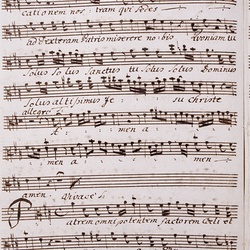 cationem nostram qui sedes
ad dexteram Patris miserere nobis Quoniam tu
solus solus Sanctus tu solus solus Dominus
solus altissimus Je su Christe
allegro
A men a
men a men
amen Vivace
Patrem omnipotentem factorem coeli et